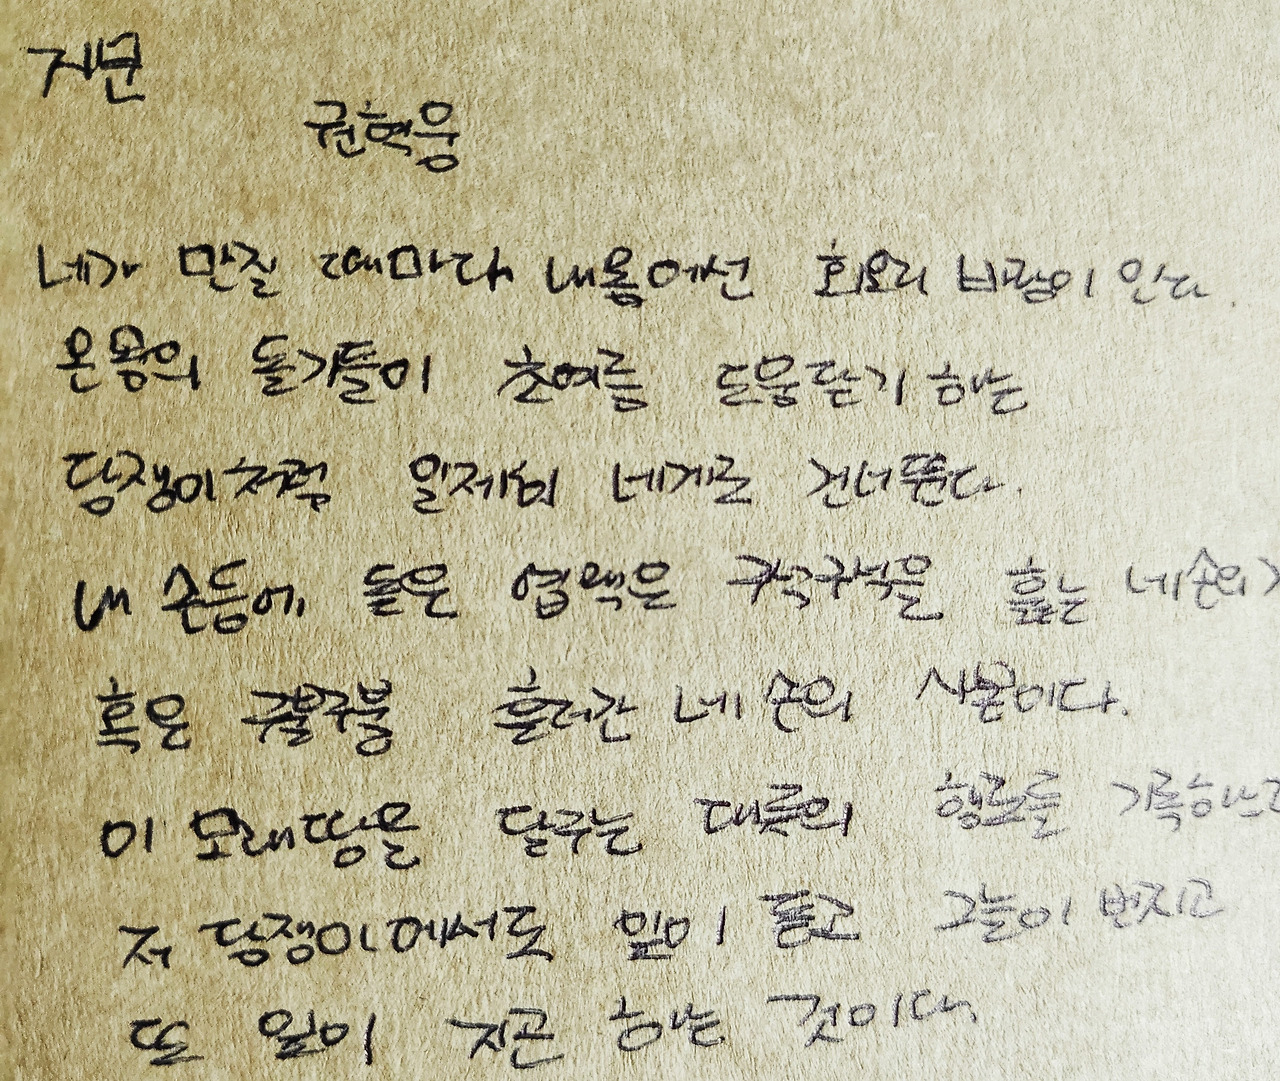 지문
권혁웅
네가 만질 때마다 내몸에선 회오리 바람이 인다.
온몸의 돌기들이 초여름 도움닫기 하는
담쟁이처럼 일제히 네게로 건너뛴다.
내 손등에 돋은 엽맥은 구석구석을 훑는 네 손의
혹은 구불구불 흘러간 네 손의 사본이다.
이 모래땅을 달구는 대륙의 행로를 기록하느라
저 담쟁이에서도 잎이 돋고 그늘이 번지고
또 잎이 지곤 하는 것이다.